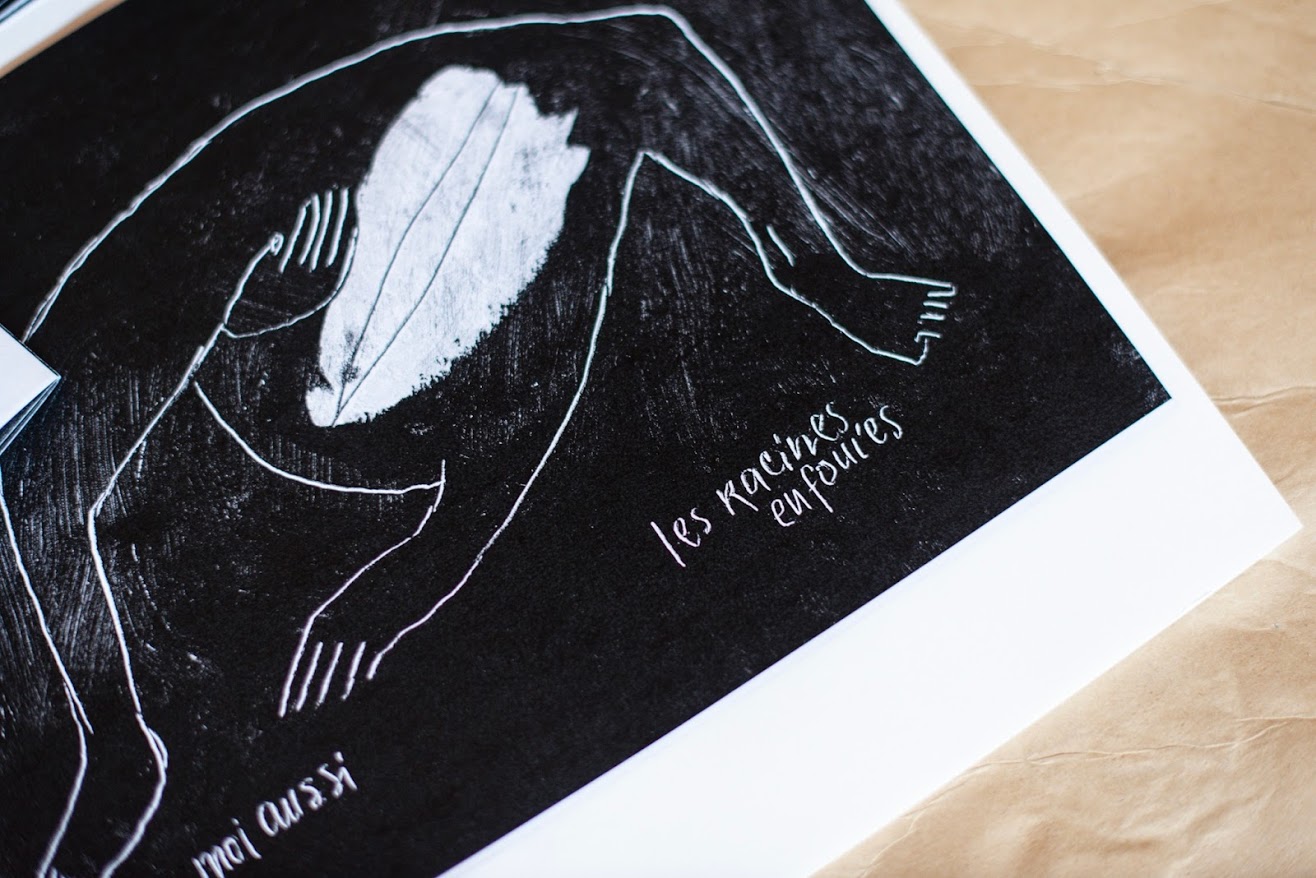 les Racines
enfouies
moi aussi